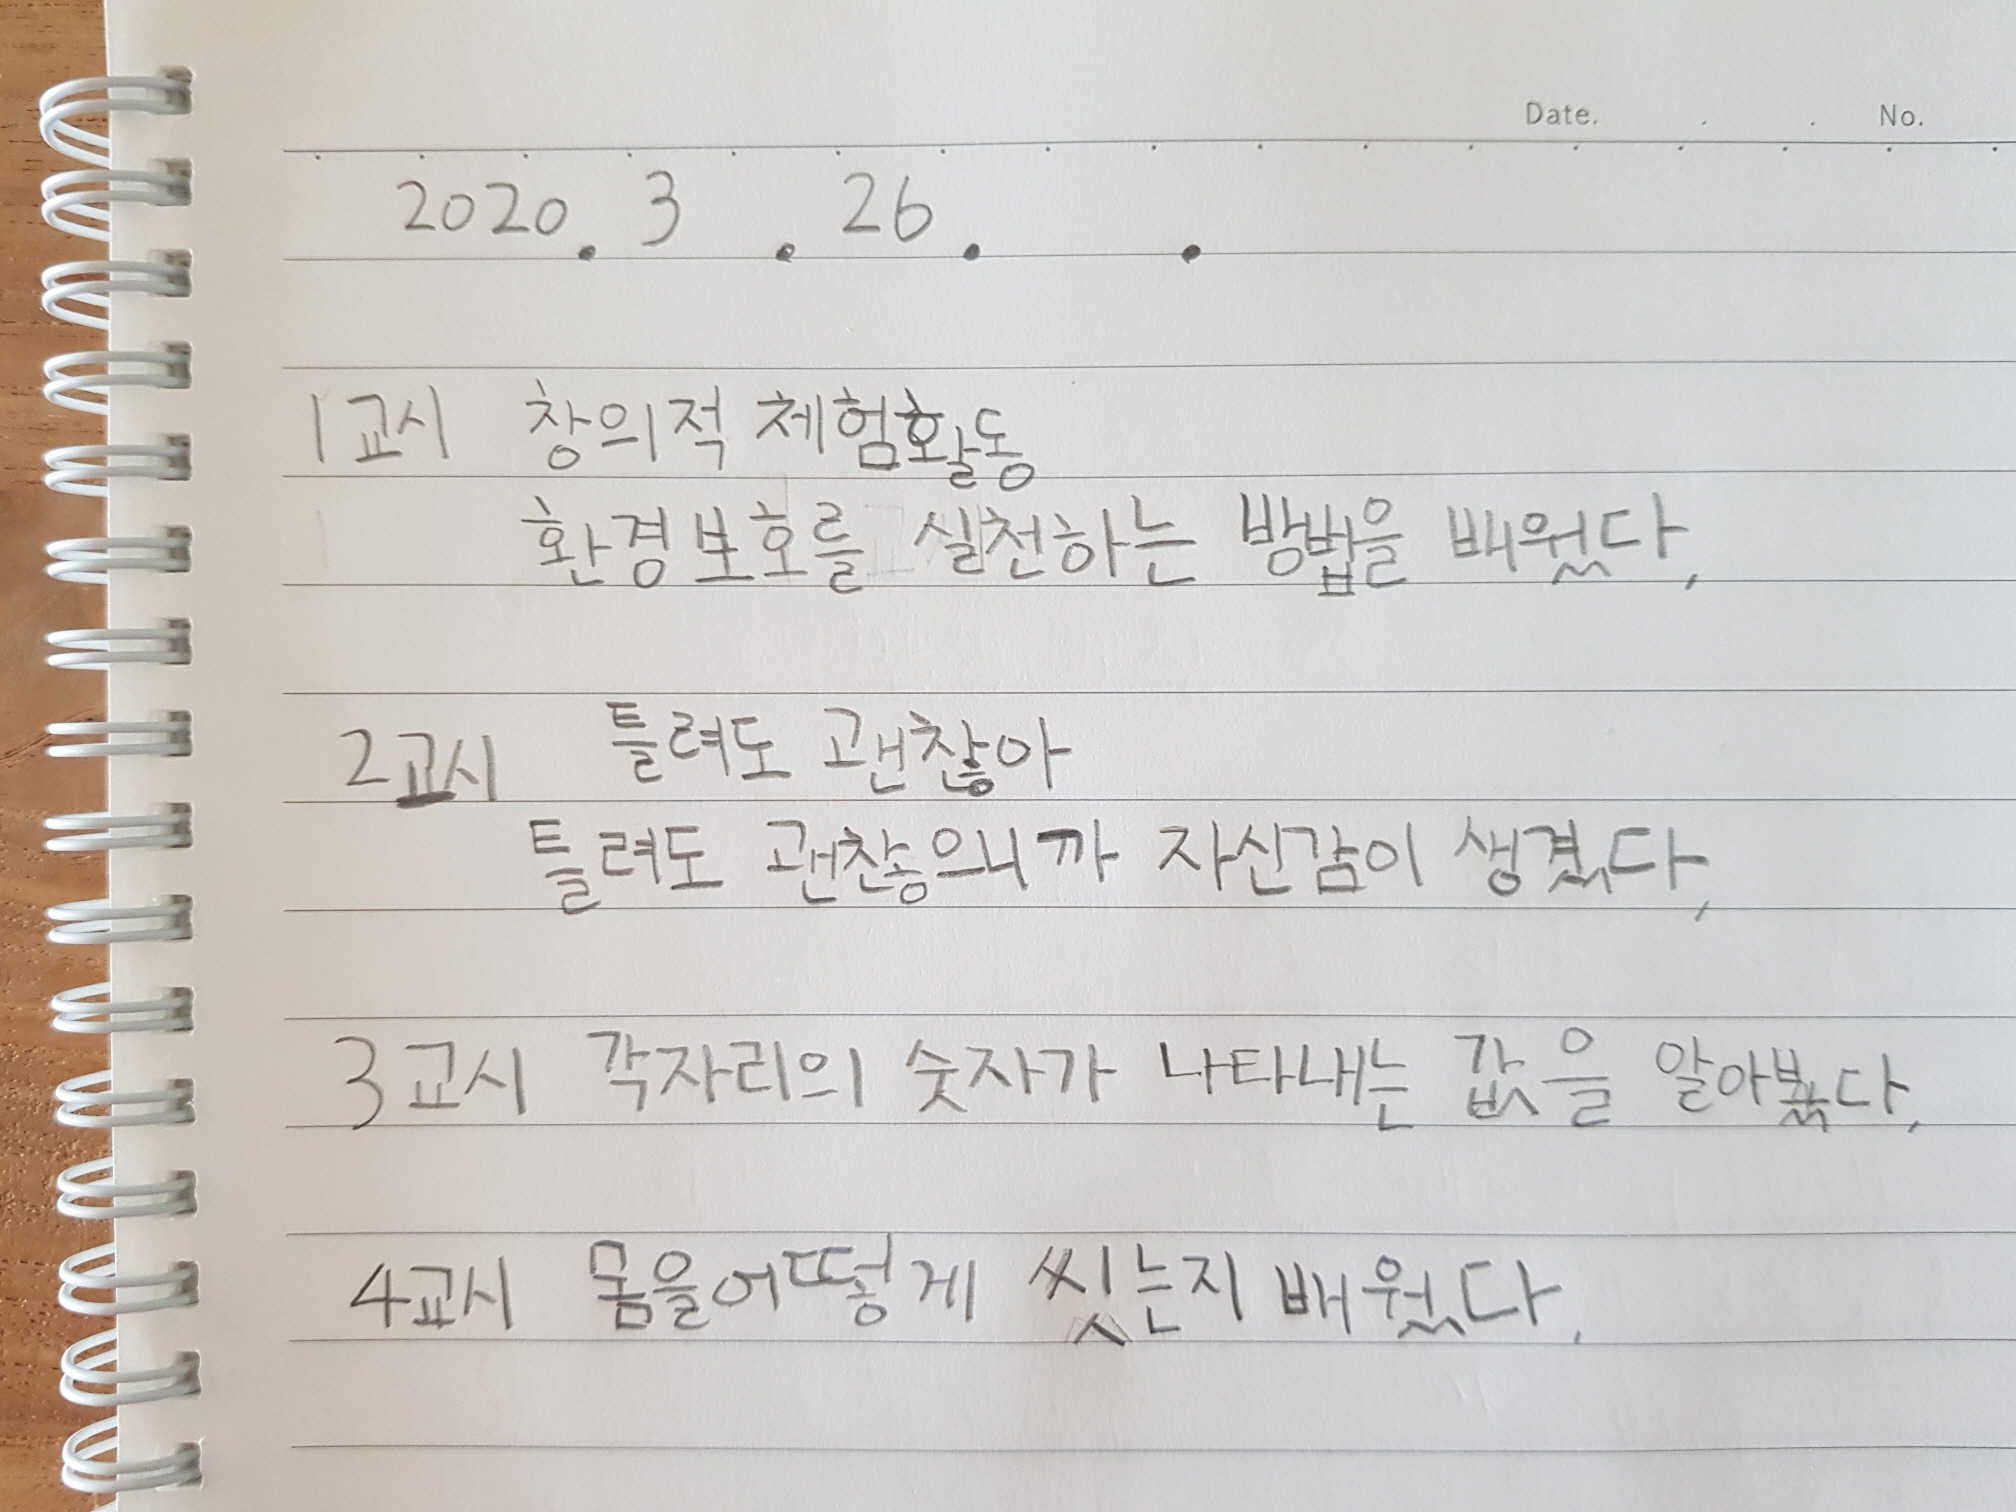 Date. . . No.
2020. 3 . 26. .
1교시 창의적 체험활동
환경보호를 실천하는 방법을 배웠다.
2교시 틀려도 괜찮아
틀려도 괜찮으니까 자신감이 생겼다.
3교시 각자리의 숫자가 나타내는 값을 알아봤다.
4교시 몸을어떻게 씻는지 배웠다.